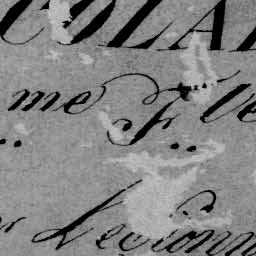 COLAI
me F. Ve
Legionn